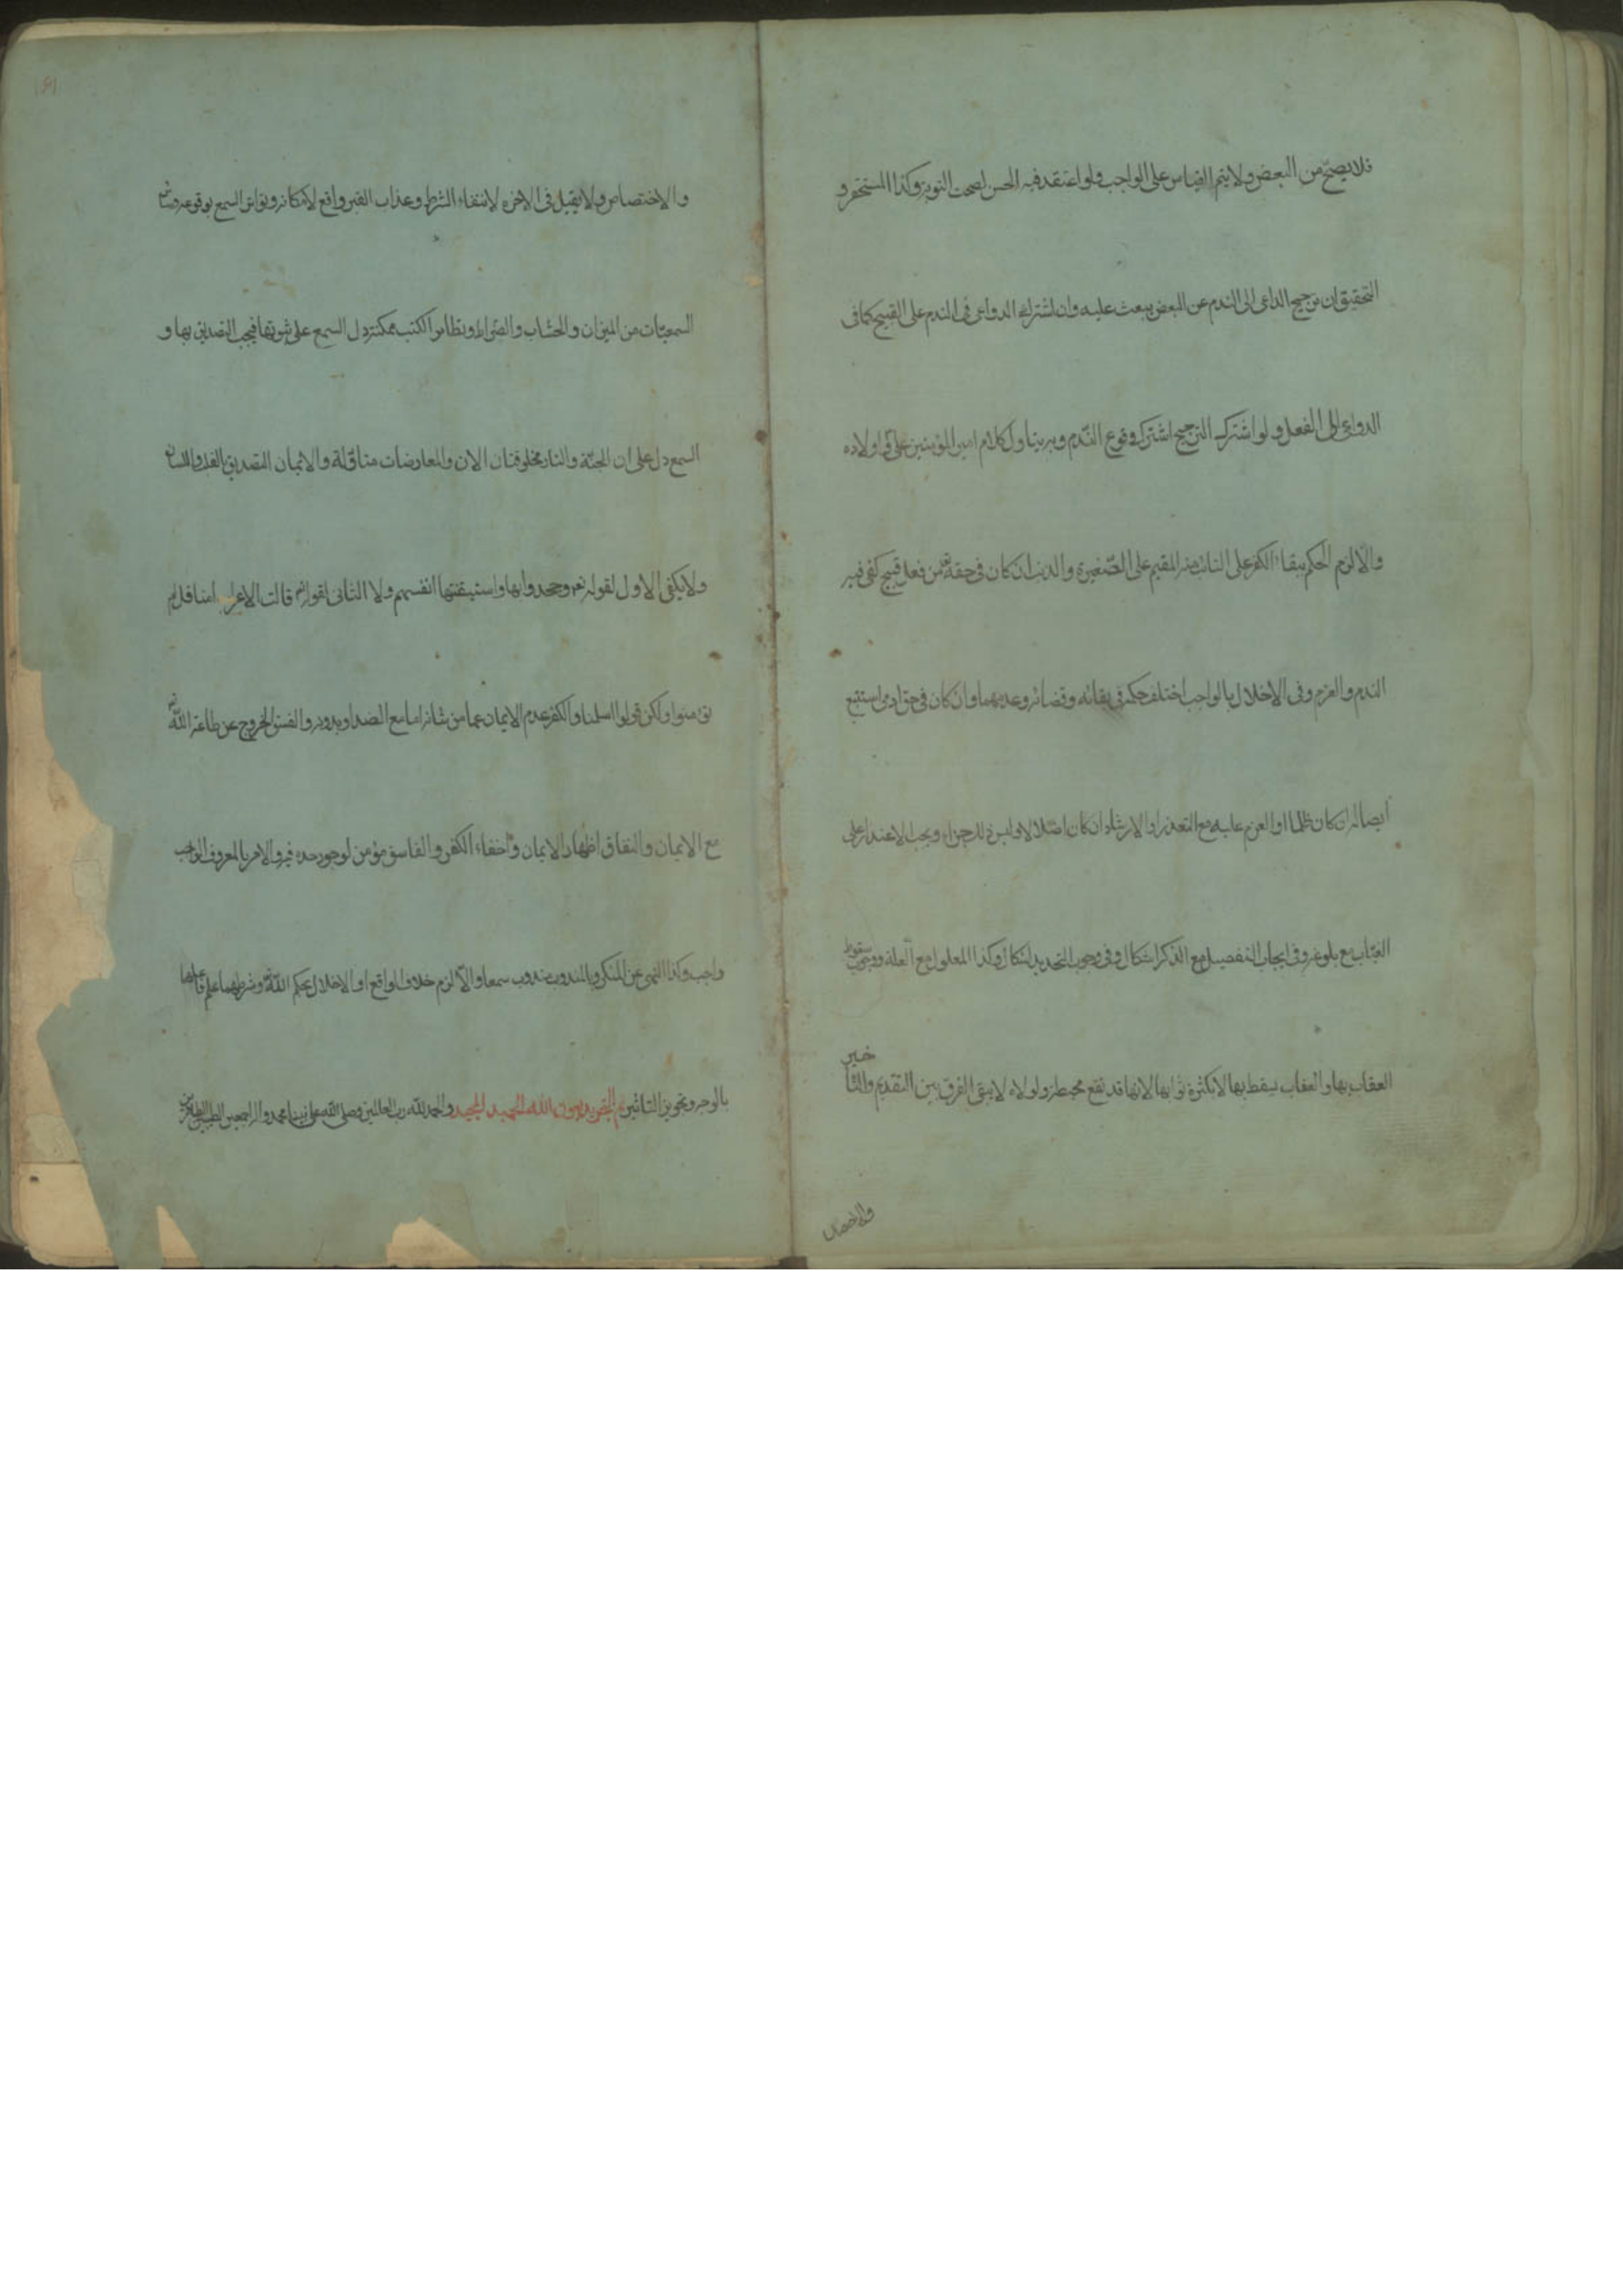 فلا يصح من البعض ولا يتم القياس على الواجب ولو اعتقد فيه الحسن لصحت التوبة وكذا المستحقر و
التحقيق ان ترجيح الداعى الى الندم عن البعض يبعث عليه وان اشترك الدواعى فى الندم على القبيح كما فى
الدواعى الى الفعل ولو اشترك الترجيح اشترك وقوع الندم وبه يتاول كلام امير المؤمنين على واولاده
والا لزم الحكم ببقاء الكفر على التائب منه المقيم على الصغيرة والذنب ان كان فى حقه من فعل قبيح كفى فيه
الندم والعزم وفى الاخلال بالواجب اختلف حكمه فى بقائه وقضائه وعدمهما وان كان فى حق ادمى استتبع
ايصاله ان كان ظلما او العزم عليه مع التعذر او الارشاد ان كان اضلالا وليس ذلك جزاء ويجب الاعتذار على
المغتاب مع بلوغه وفى ايجاب التفصيل مع الذكر اشكال وفى وجوب التجديد اشكال وكذا المعلول مع العلة ووجوب سقوط
العقاب بها والعقاب يسقط بها لا بكثرة ثوابها لانها قد تقع محبطة ولولاه لا يبقى الفرق بين التقديم والتا
خير
والاختصاص
والاختصاص ولا تقبل فى الاخرة لانتفاء الشرط وعذاب القبر واقع لامكانه وتواتر السمع بوقوعه وسائر
السمعيات من الميزان والحساب والصراط وتطاير الكتب ممكنة دل السمع على ثبوتها فيجب التصديق بها و
السمع دل على ان الجنة والنار مخلوقتان الان والمعارضات متاولة والايمان التصديق بالقلب واللسان
ولا يكفى الاول لقوله تعم وجحدوا بها واستيقنتها انفسهم ولا الثانى لقوله تعم قالت الاعراب امنا قل لم
تؤمنوا ولكن قولوا اسلمنا والكفر عدم الايمان عما من شانه اما مع الضد او بدونه والفسق الخروج عن طاعة الله تعم
مع الايمان والنفاق اظهار الايمان واخفاء الكفر والفاسق مؤمن لوجود حده فيه والامر بالمعروف الواجب
واجب وكذا النهى عن المنكر وبالمندوب مندوب سمعا والا لزم خلاف الواقع او الاخلال بحكم الله وشرطهما علم فاعلهما
بالوجه وتجويز التاثير تم التجريد بعون الله الحميد المجيد والحمد لله رب العالمين وصلى الله على نبينا محمد واله اجمعين الطيبين الطاهرين